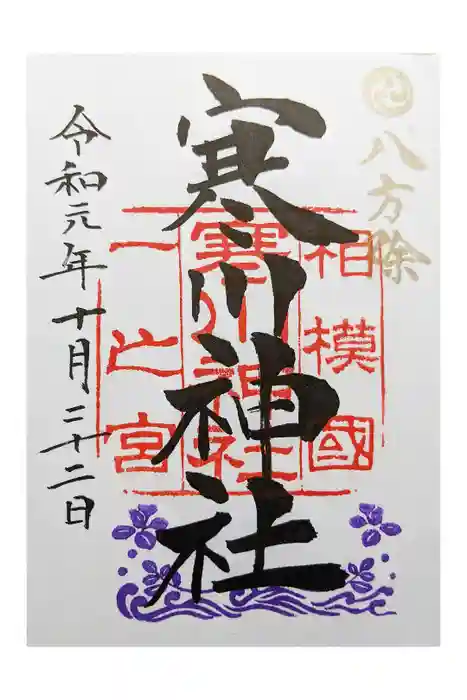 八方除
寒川神社
相模國
寒川神社
一之宮
令和元年十月二十二日